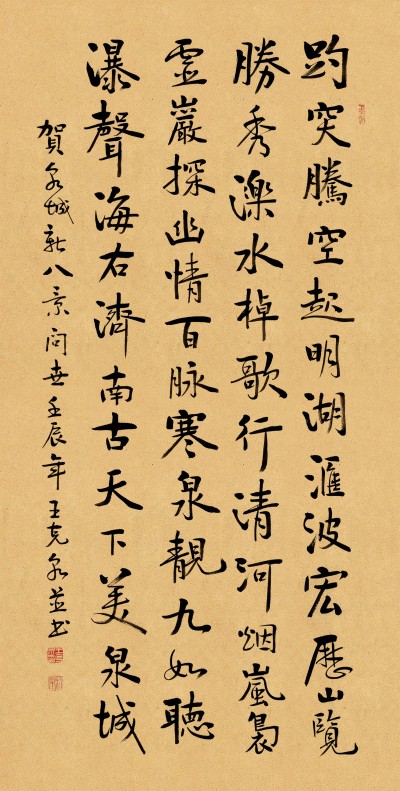 趵突騰空起明湖滙波宏歷山覽
勝秀濼水棹歌行清河烟嵐裊
霊巖探幽情百脉寒泉靚九如聽
瀑聲海右濟南古天下美泉城
賀泉城新八景问世壬辰年王克泉並书